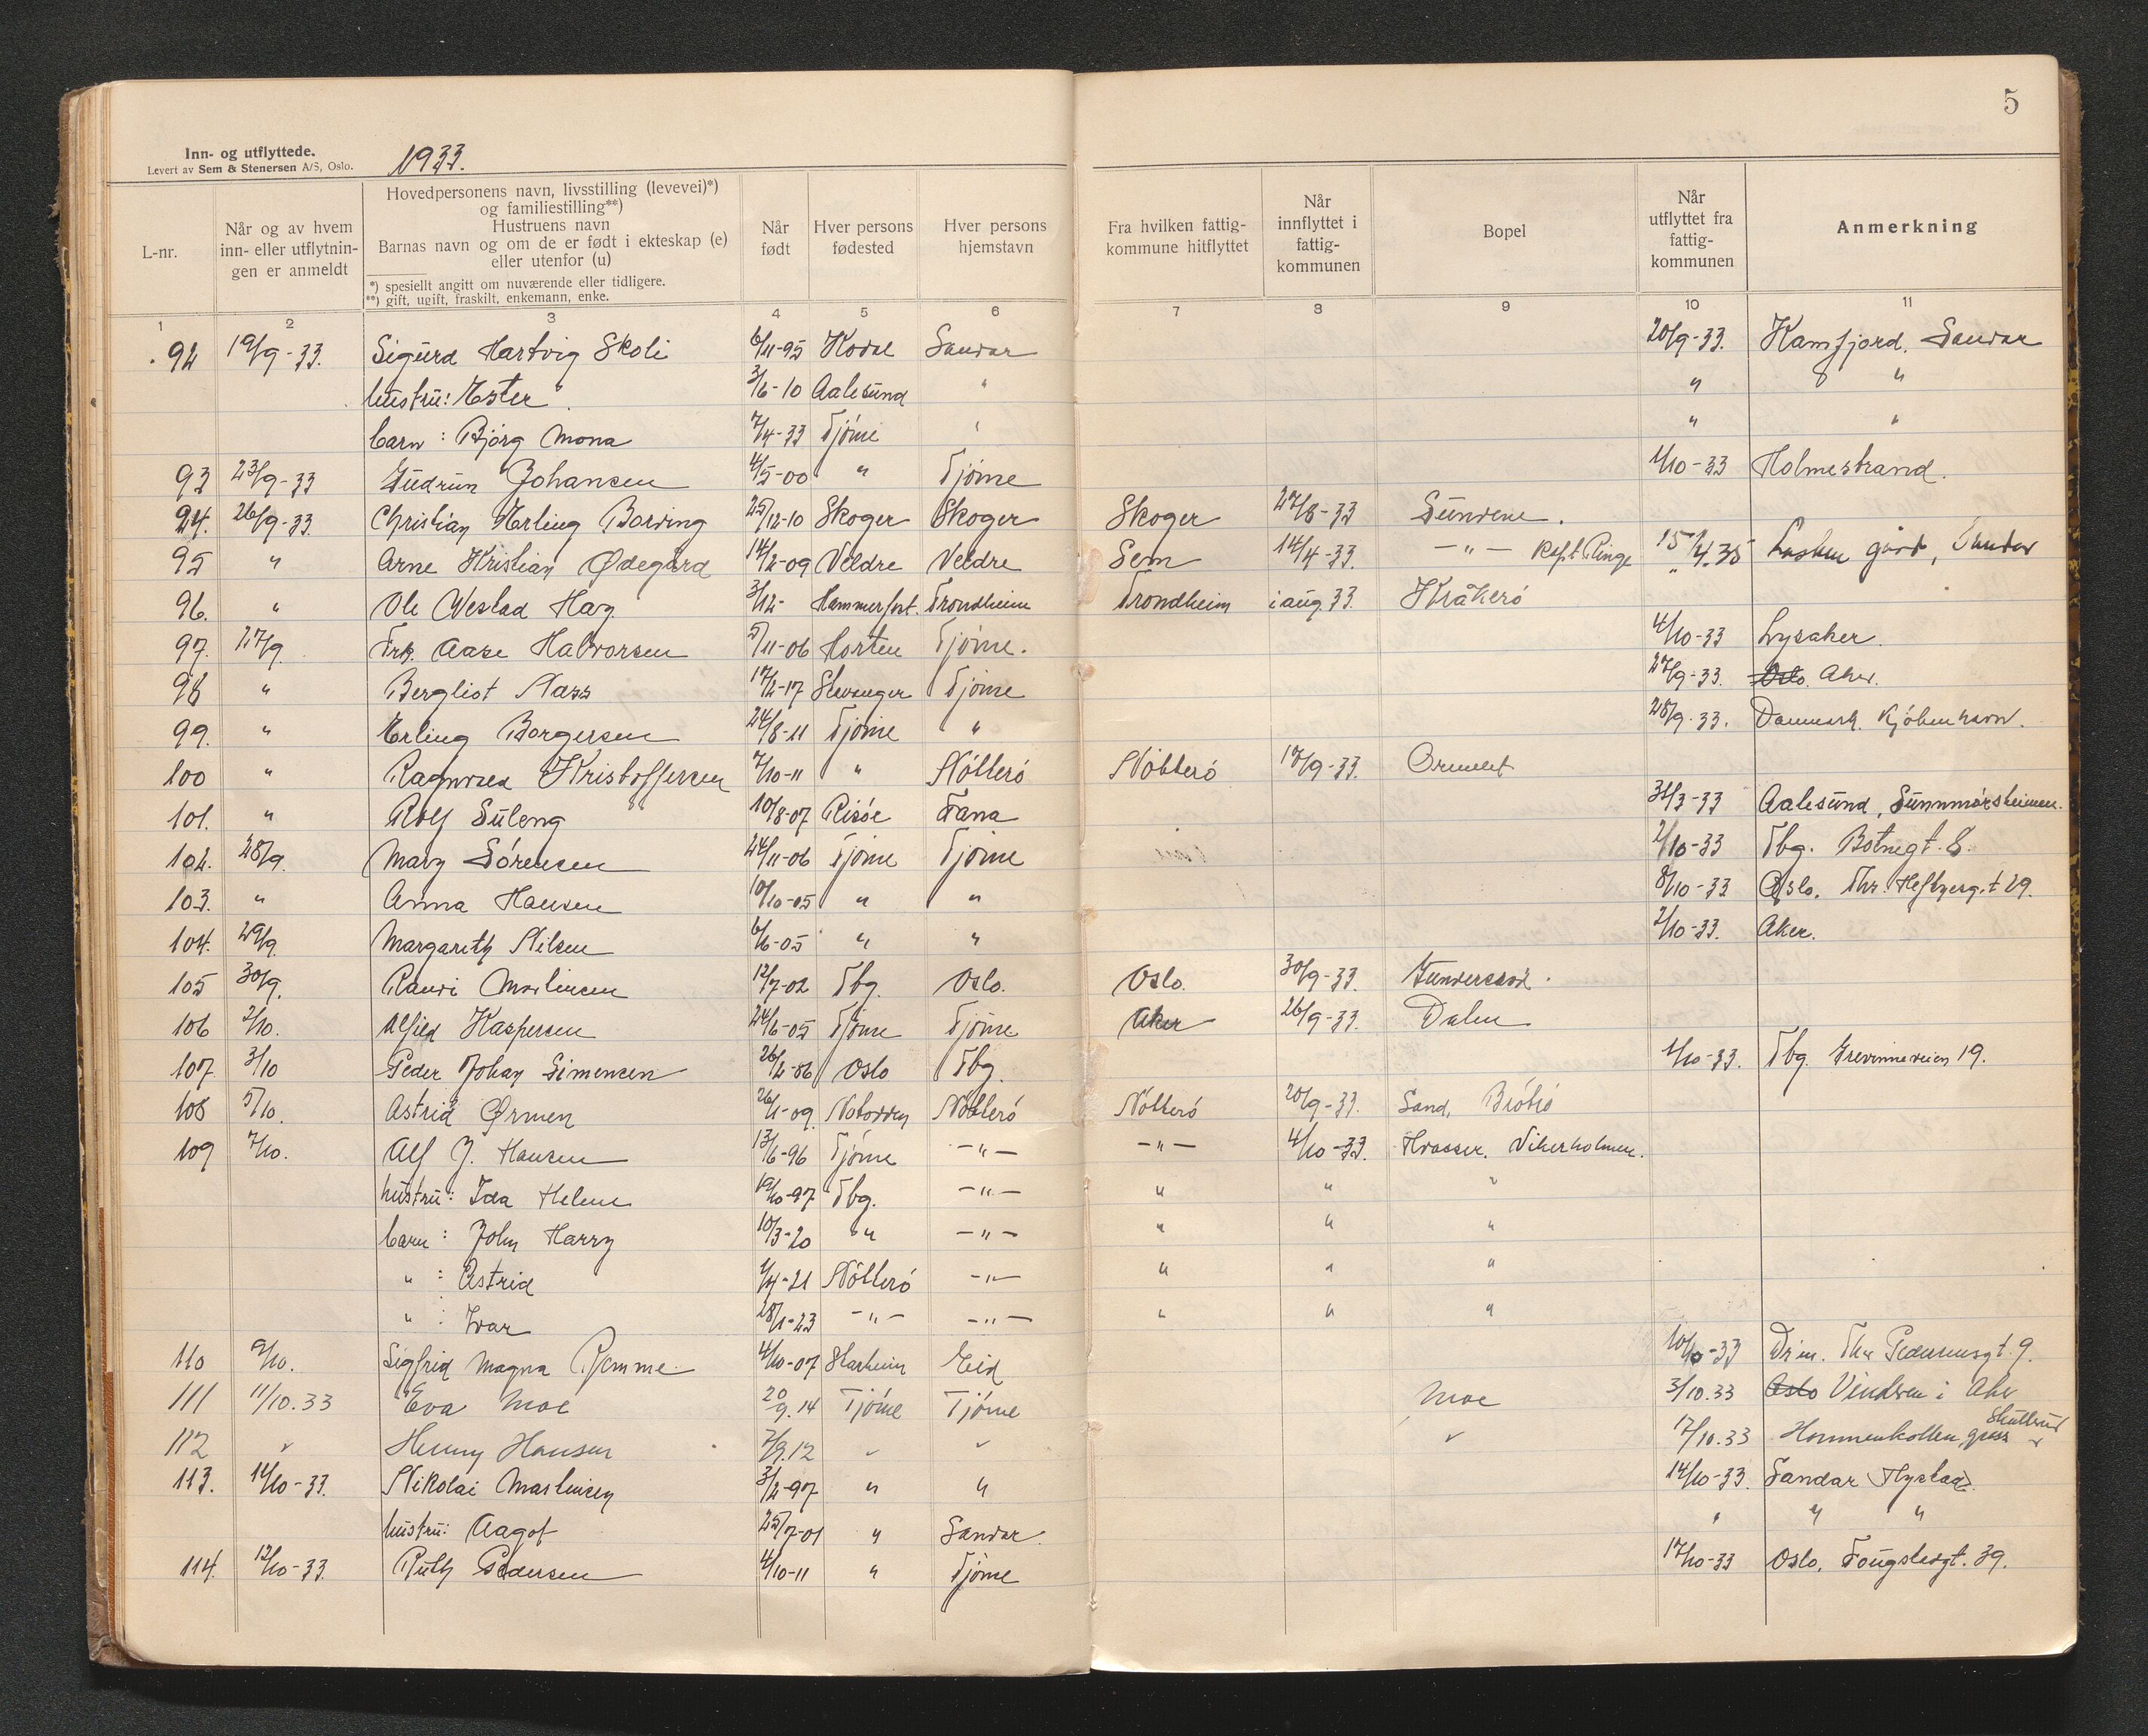 5
Inn- og utflyttede.
Levert av Sem & Stenersen A/S, Oslo.
1933.
L-nr.
Når og av hvem
inn- eller utflytnin-
gen er anmeldt
Hovedpersonens navn, livsstilling (levevei)*)
og familiestilling**)
Hustruens navn
Barnas navn og om de er født i ekteskap (e)
eller utenfor (u)
*) spesiellt angitt om nuværende eller tidligere.
**) gift, ugift, fraskilt, enkemann, enke.
Når
født
Hver persons
fødested
Hver persons
hjemstavn
Fra hvilken fattig-
kommune hitflyttet
Når
innflyttet i
fattig-
kommunen
Bopel
Når
utflyttet fra
fattig-
kommunen
Anmerkning
1 2 3 4 5 6 7 8 9 10 11
92 19/9-33. Sigurd Hartvig Skoli 6/11-95 Kodal Sandar 20/9-33. Kamfjord. Sandar
hustru: Ester 3/6-10 Aalesund " " " "
barn: Bjørg Mona 7/4-33 Tjöme " " "
93 23/9-33 Gudrun Johansen 4/5-00 " Tjöme 1/10-33 Holmestrand.
94. 26/9-33. Christian Erling Bording 25/12-10 Skoger Skoger Skoger 27/8-33 Sundene.
95 " Arne Kristian Ødegård 14/2-09 Veldre Veldre Sem 14/4-33. -"- Ringe 15/4-35 gård, Sandar
96. " Ole Westad Hag 3/12- Hammerfest. Trondheim Trondheim i aug. 33. Kråkerö
97. 27/9. Frk. Aase Halvorsen 5/11-06 Horten Tjöme. 4/10-33 Lysaker.
98 " Bergliot Næss 17/2-17 Stavanger Tjöme 27/9-33. Oslo. Aker.
99. " Erling Borgersen 24/8-11 Tjöme " 28/9-33. Danmark. Kjöbenhavn.
100 " Kristoffersen 7/10-11 " Nötterö Nötterö 17/9-33. Ormelet
101. " Rolf Suleng 10/8-07 Risöe Fana 31/3-33 Aalesund, Sunnmörsheimen.
102. 28/9. Mary Sörensen 24/11-06 Tjöme Tjöme 2/10-33 Tbg. Botnegt. 8.
103. " Anna Hansen 10/10-05 " " 8/10-33 Oslo. Thr. Heftyergt 29.
104. 29/9. Margareth Nilsen 6/6-05 " " 2/10-33. Aker.
105 30/9. Randi Martinsen 12/7-02 Tbg. Oslo. Oslo. 30/9-33. Gundersrød.
106 2/10. Alfild Kaspersen 24/6-05 Tjöme Tjöme Aker 26/9-33. Dalen
107 3/10 Peder Johan Simensen 26/2-86 Oslo Tbg. 1/10-33. Tbg. Grevinneveien 19.
108 5/10. Astrid Ørmen 26/1-09. Notodden Nötterö Nötterö 20/9-33. Sand, Bröttö
109 7/10. Alf J. Hansen 13/6-96 Tjöme -"- -"- 4/10-33. Hvasser. Vikerholmen.
hustru: Ida Helene 19/10-97 Tbg. -"- " " "
barn: John Harry 10/3-20 " -"- " " "
" : Astrid 1/4-21 Nötterö -"- " " "
" : Ivar 28/1-23 -"- -"- " " "
110 9/10. Sigfrid Magna Rjemme 4/10-07 Starheim Eid 10/10-33 Drm. Thr. Pedersensgt. 9.
111 11/10.33 Eva Moe 20/9.14 Tjöme Tjöme Moe 3/10.33 Oslo Vinderen i Aker
112 " Henny Hansen 7/9.12 " " " 17/10.33 Hommenkollen,
113. 14/10-33. Nikolai Martinsen 3/2-97 " " 14/10-33. Sandar Hystad.
hustru: Aagot 25/7-01 " Sandar. " " "
114. 12/10-33. Ruth Pedersen 4/10-11 " Tjöme 17/10-33 Oslo. Fougstadgt. 39.